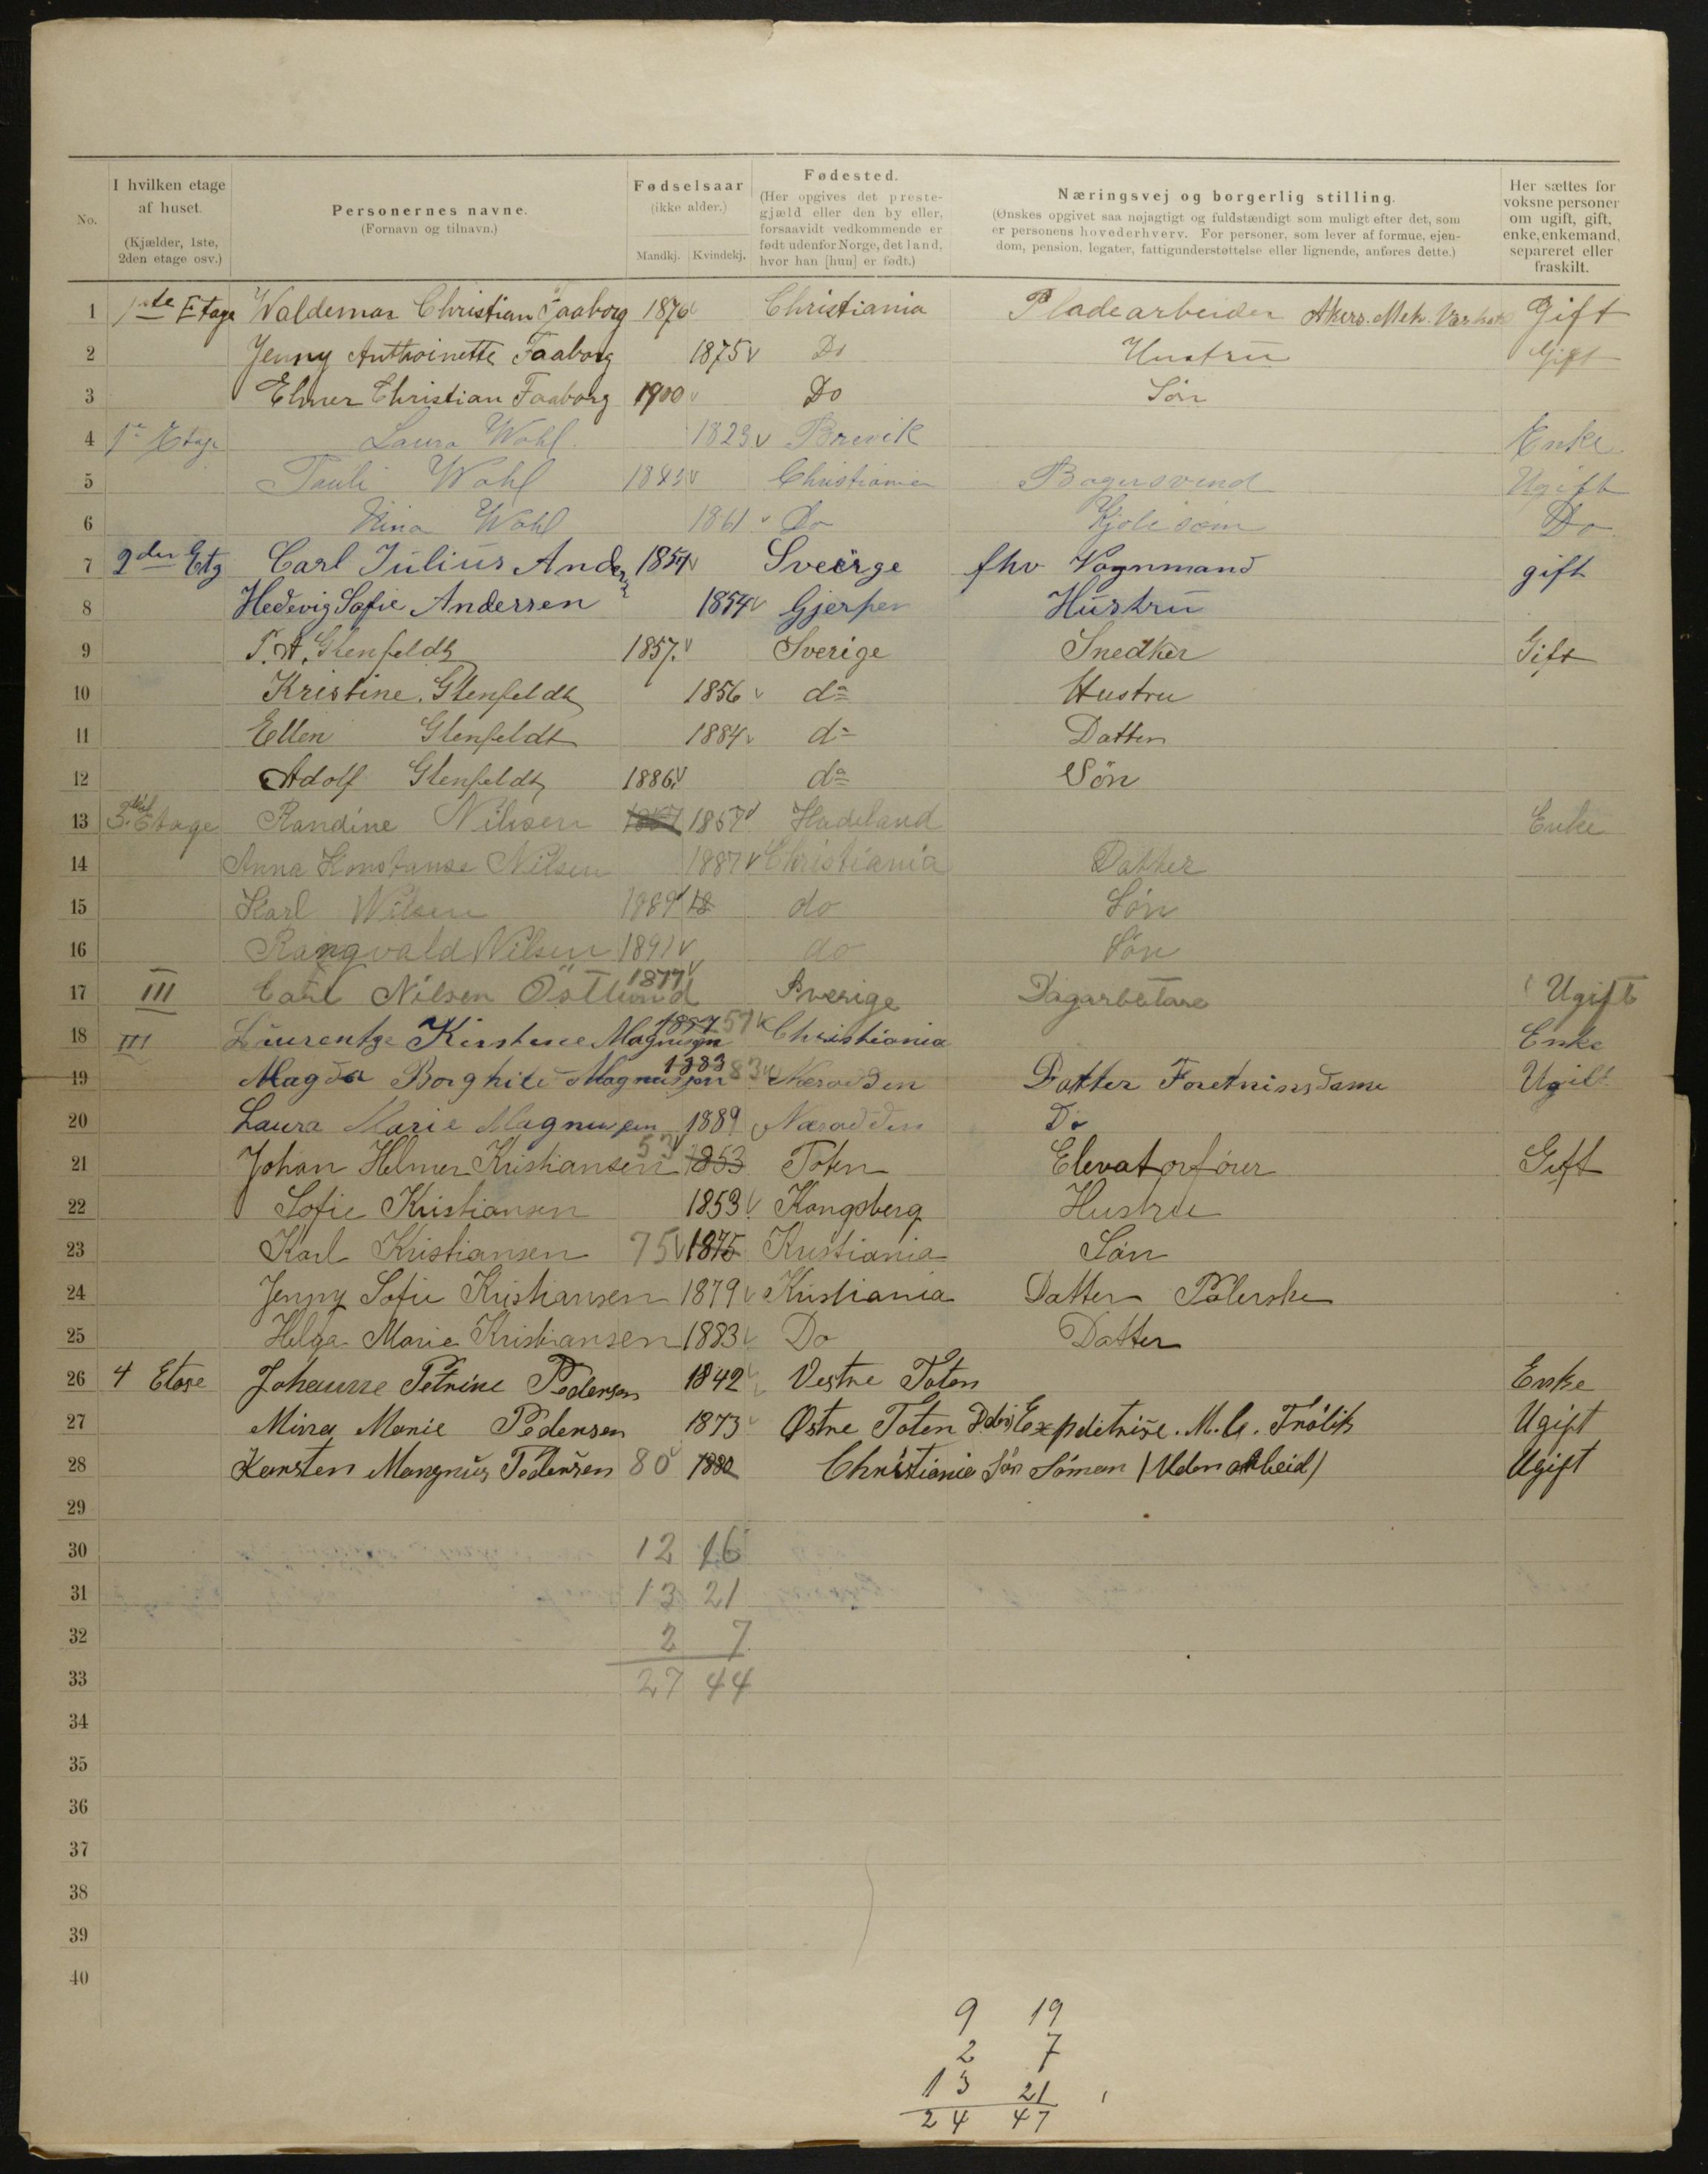 No.
I hvilken etage af huset. (Kjælder, 1ste, 2den etage osv.)
Personernes navne. (Fornavn og tilnavn.)
Fødselsaar (ikke alder.) Mandkj. Kvindekj.
Fødested. (Her opgives det prestegjæld eller den by eller, forsaavidt vedkommende er født udenfor Norge, det land, hvor han [hun] er født.)
Næringsvej og borgerlig stilling. (Ønskes opgivet saa nøjagtigt og fuldstændigt som muligt efter det, som er personens hovederhverv. For personer, som lever af formue, ejendom, pension, legater, fattigunderstøttelse eller lignende, anføres dette.)
Her sættes for voksne personer om ugift, gift, enke, enkemand, separeret eller fraskilt.
1 1ste Etage Waldemar Christian Faaborg 1876 Christiania Pladearbeider Akers. Mek. Gift
2 Jenny Anthoinette Faaborg 1875 Do Hustru Gift
3 Elmer Christian Faaborg 1900 Do Søn
4 1ste Etage Laura Wahl 1823 Brevik Enke
5 Wahl Christiania Bagersvend Ugift
6 Nina Wahl 1861 Do Do
7 2den Etg Carl Julius Ander 1854 Sverige fhv Vognmand gift
8 Hedevig Sofie Andersen 1854 Gjerpen Hustru
9 Glenfeldt 1857 Sverige Snedker Gift
10 Kristine Glenfeldt 1856 do Hustru
11 Ellen Glenfeldt 1884 do Datter
12 Adolf Glenfeldt 1886 do Søn
13 3. Etage Randine Nilsen 1857 Hadeland Enke
14 Anna Konstanse Nilsen 1887 Christiania Datter
15 Karl Nilsen 1889 18 do Søn
16 Rangvald Nilsen 1891 do Søn
17 III Carl Nilsen Östlund 1877 Sverige Dagarbetare Ugift
18 III Laurentze Kirstine Magnusen 1857 57 K Christiania Enke
19 Magda Borghild Magnussen 1883 83 Næsodden Datter Foretninsdame Ugift
20 Laura Marie Magnussen 1889 Næsodden Do
21 Johan Helmer Kristiansen 53 1853 Toten Elevatorfører Gift
22 Sofie Kristiansen 1853 Kongsberg Hustru
23 Karl Kristiansen 75 1875 Kristiania Søn
24 Jenny Sofie Kristiansen 1879 Kristiania Datter Polerske
25 Helga Marie Kristiansen 1883 Do Datter
26 4 Etage Johanne Petrine Pedersen 1842 Vestre Toten Enke
27 Mina Marie Pedersen 1873 Østre Toten Expeditrise. Ugift
28 Karsten Mangnus Pedersen 80 1880 Christiania Søn Söman (Uden arbeid) Ugift
29
30 12 16
31 13 21
32 2 7
33 27 44
34
35
36
37
38
39
40
9 19
2 7
13 21
24 47